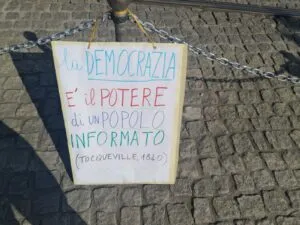 la DEMOCRAZIA
E' il POTERE
di un POPOLO
INFORMATO
(TOCQUEVILLE, 1840)